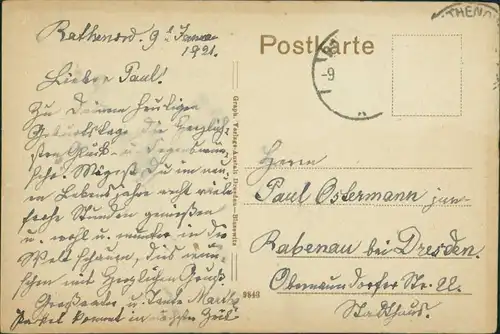 Rathenow, 9. Januar
1921.
Lieber Paul!
Zu Deinem heutigen
Geburtstage die herzlich-
sten Glück- u. Segenswün-
sche! Mögest Du im neu-
en Lebensjahre recht viele
frohe Stunden genießen
u. wohl u. munter in die
Welt schauen, dies wün-
schen mit herzlichen Gruß
Großmama u. Tante Marth
Paket kommt in nächster Zeit
Postkarte
THENO
-9
Graph. Verlags-Anstalt Dresden-Blasewitz
9643
Herrn
Paul Ostermann jun.
Rabenau bei Dresden.
Obernaundorfer Str.
Stadthaus.